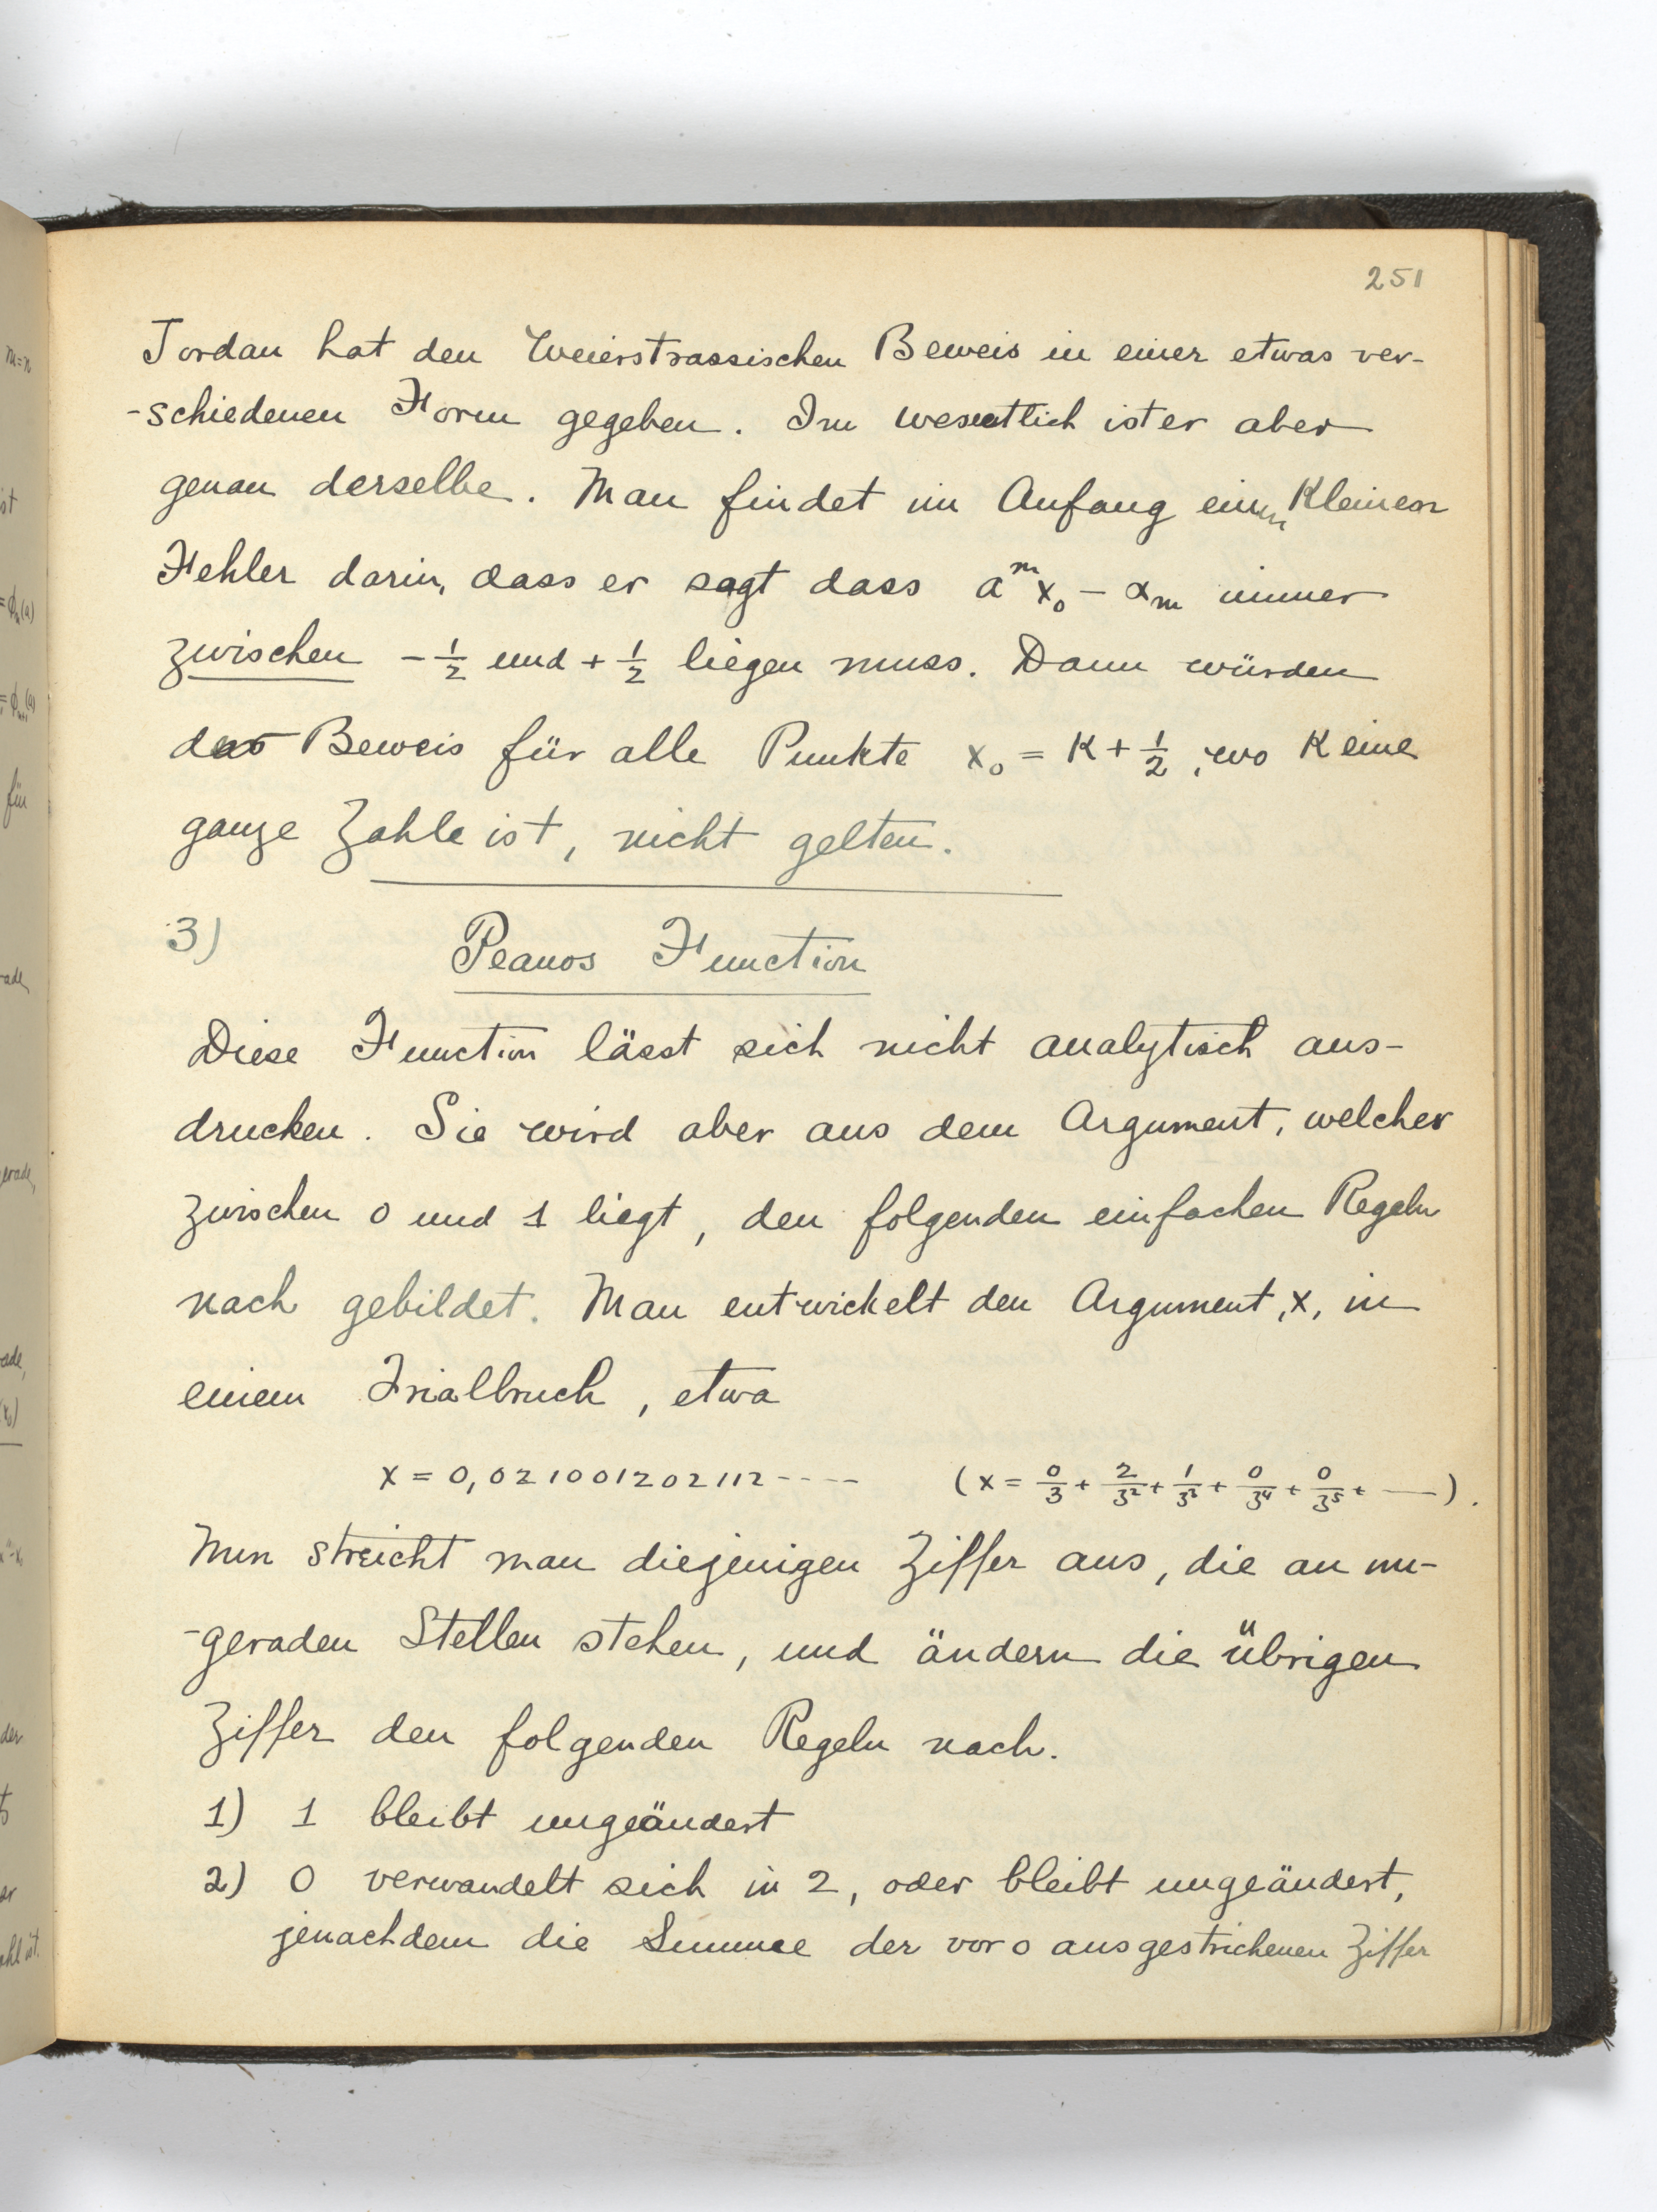 251
Jordan hat den Weierstrassischen Beweis in einer etwas ver-
-schiedenen Form gegeben. Im wesentlich ist er aber
genau derselbe. Man findet im Anfang einen kleinen
Fehler darin, dass er sagt dass a^m x₀ - α_m immer
zwischen - 1/2 und + 1/2 liegen muss. Dann würden
das Beweis für alle Punkte x₀ = K + 1/2, wo K eine
ganze Zahle ist, nicht gelten.
3) Peanos Function
Diese Function lässt sich nicht analytisch aus-
drucken. Sie wird aber aus dem Argument, welcher
zwischen 0 und 1 liegt, den folgenden einfachen Regeln
nach gebildet. Man entwickelt den Argument, x, in
einem Trialbruch, etwa
x = 0,021001202112---- (x = 0/3 + 2/3² + 1/3³ + 0/3⁴ + 0/3⁵ + —).
Nun streicht man diejenigen Ziffer aus, die an un-
-geraden Stellen stehen, und ändern die übrigen
Ziffer den folgenden Regeln nach.
1) 1 bleibt ungeändert
2) 0 verwandelt sich in 2, oder bleibt ungeändert,
jenachdem die Summe der vor 0 ausgestrichenen Ziffer